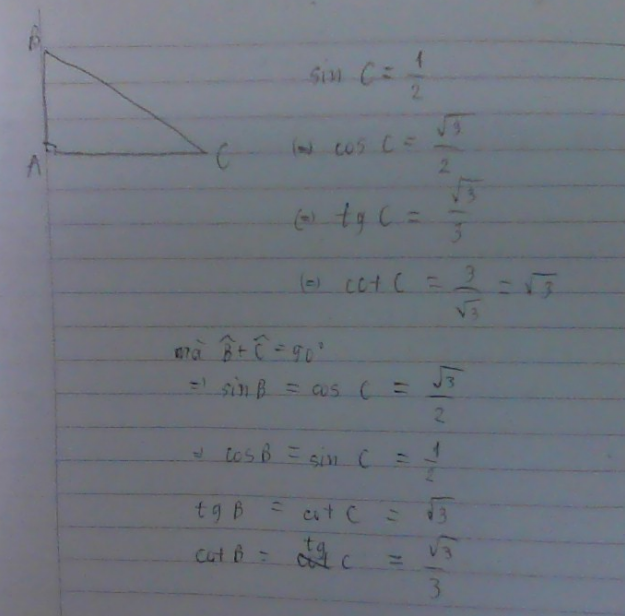 B
A
C
sin C = 1/2
(=) cos C = √3/2
(=) tg C = √3/3
(=) cot C = 3/√3 = √3
mà B̂ + Ĉ = 90°
=) sin B = cos C = √3/2
=) cos B = sin C = 1/2
tg B = cot C = √3
cot B = tg C = √3/3